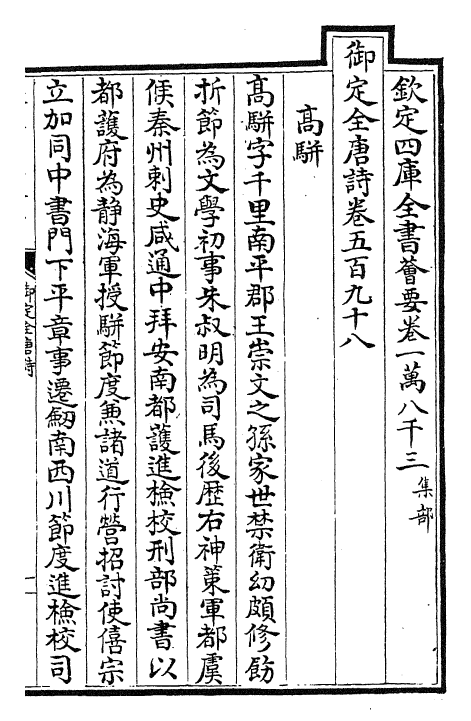 欽定四庫全書薈要卷一萬八千三 集部
御定全唐詩卷五百九十八
高駢
高駢字千里南平郡王崇文之孫家世禁衛幼頗修飭
折節為文學初事朱叔明為司馬後歷右神策軍都虞
候秦州刺史咸通中拜安南都護進檢校刑部尚書以
都護府為静海軍授駢節度兼諸道行營招討使僖宗
立加同中書門下平章事遷劒南西川節度進檢校司
御定全唐詩
一